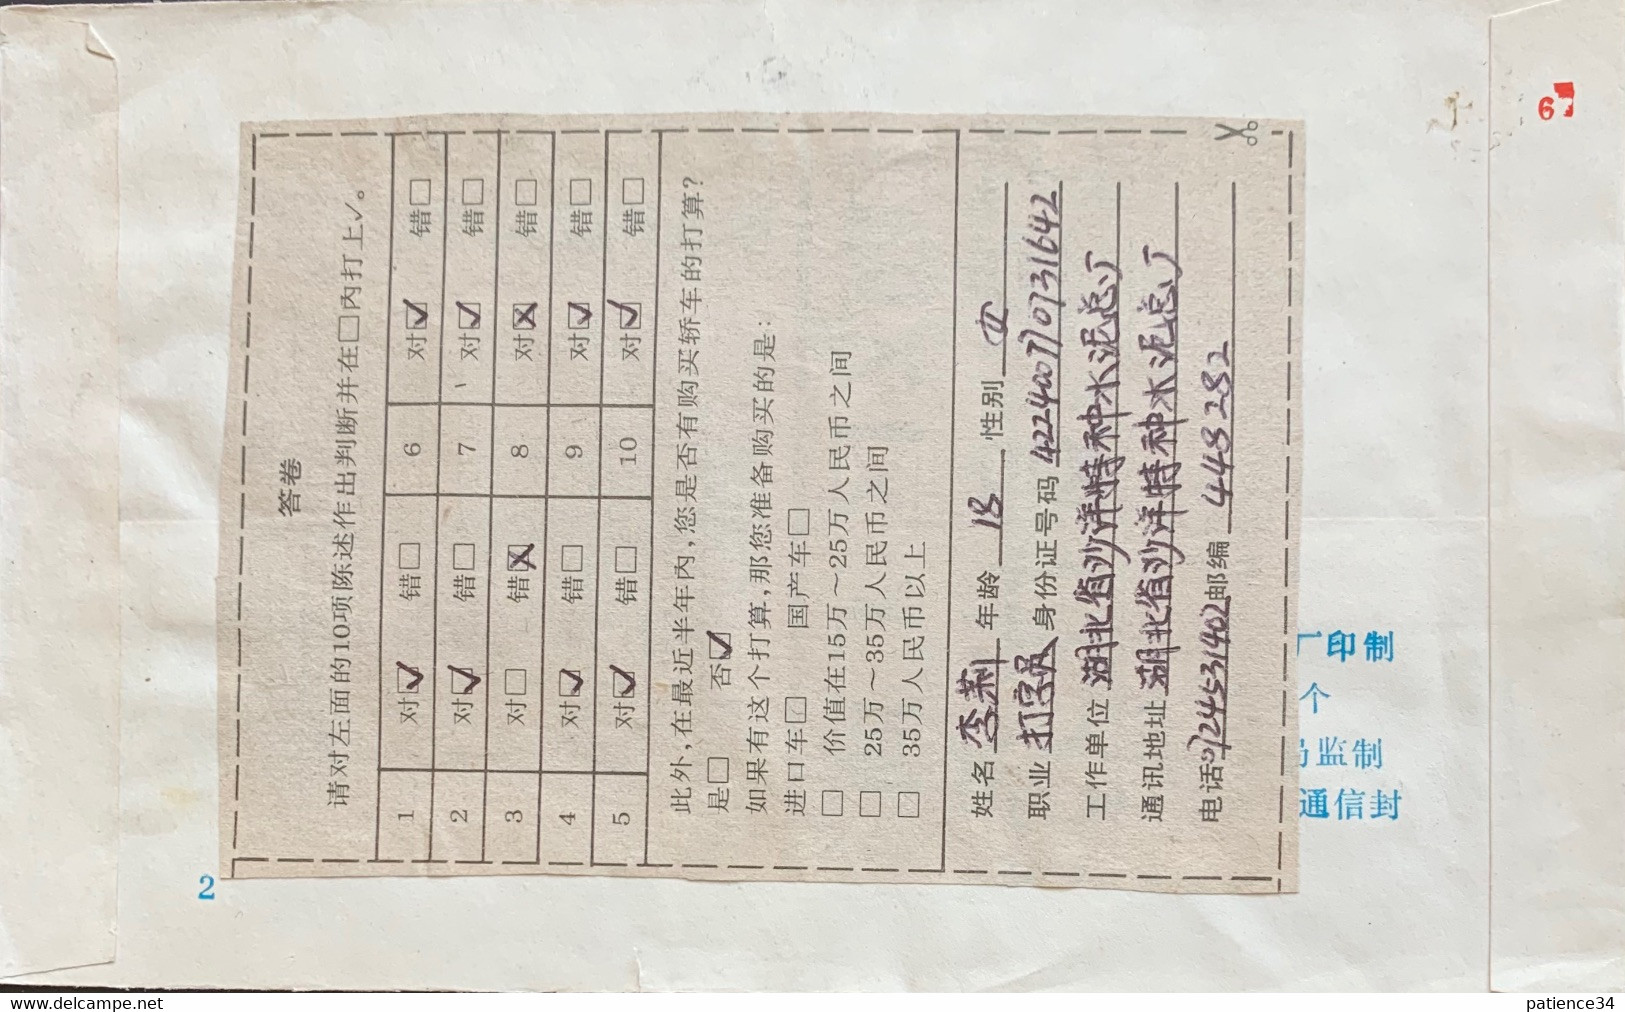 答卷
请对左面的10项陈述作出判断并在□内打上✓。
1 对☑ 错□ 6 对☑ 错□
2 对☑ 错□ 7 对☑ 错□
3 对□ 错☒ 8 对☒ 错□
4 对☑ 错□ 9 对☑ 错□
5 对☑ 错□ 10 对☑ 错□
此外,在最近半年内,您是否有购买轿车的打算?
是□ 否☑
如果有这个打算,那您准备购买的是:
进口车□ 国产车□
□ 价值在15万~25万人民币之间
□ 25万~35万人民币之间
□ 35万人民币以上
姓名 李荆 年龄 18 性别 女
职业 打字员 身份证号码 422400770731642
工作单位 湖北省沙洋特种水泥总厂
通讯地址 湖北省沙洋特种水泥总厂
电话 邮编 448282
印制
个
监制
通信封
2
6
delcampe.net
patience34